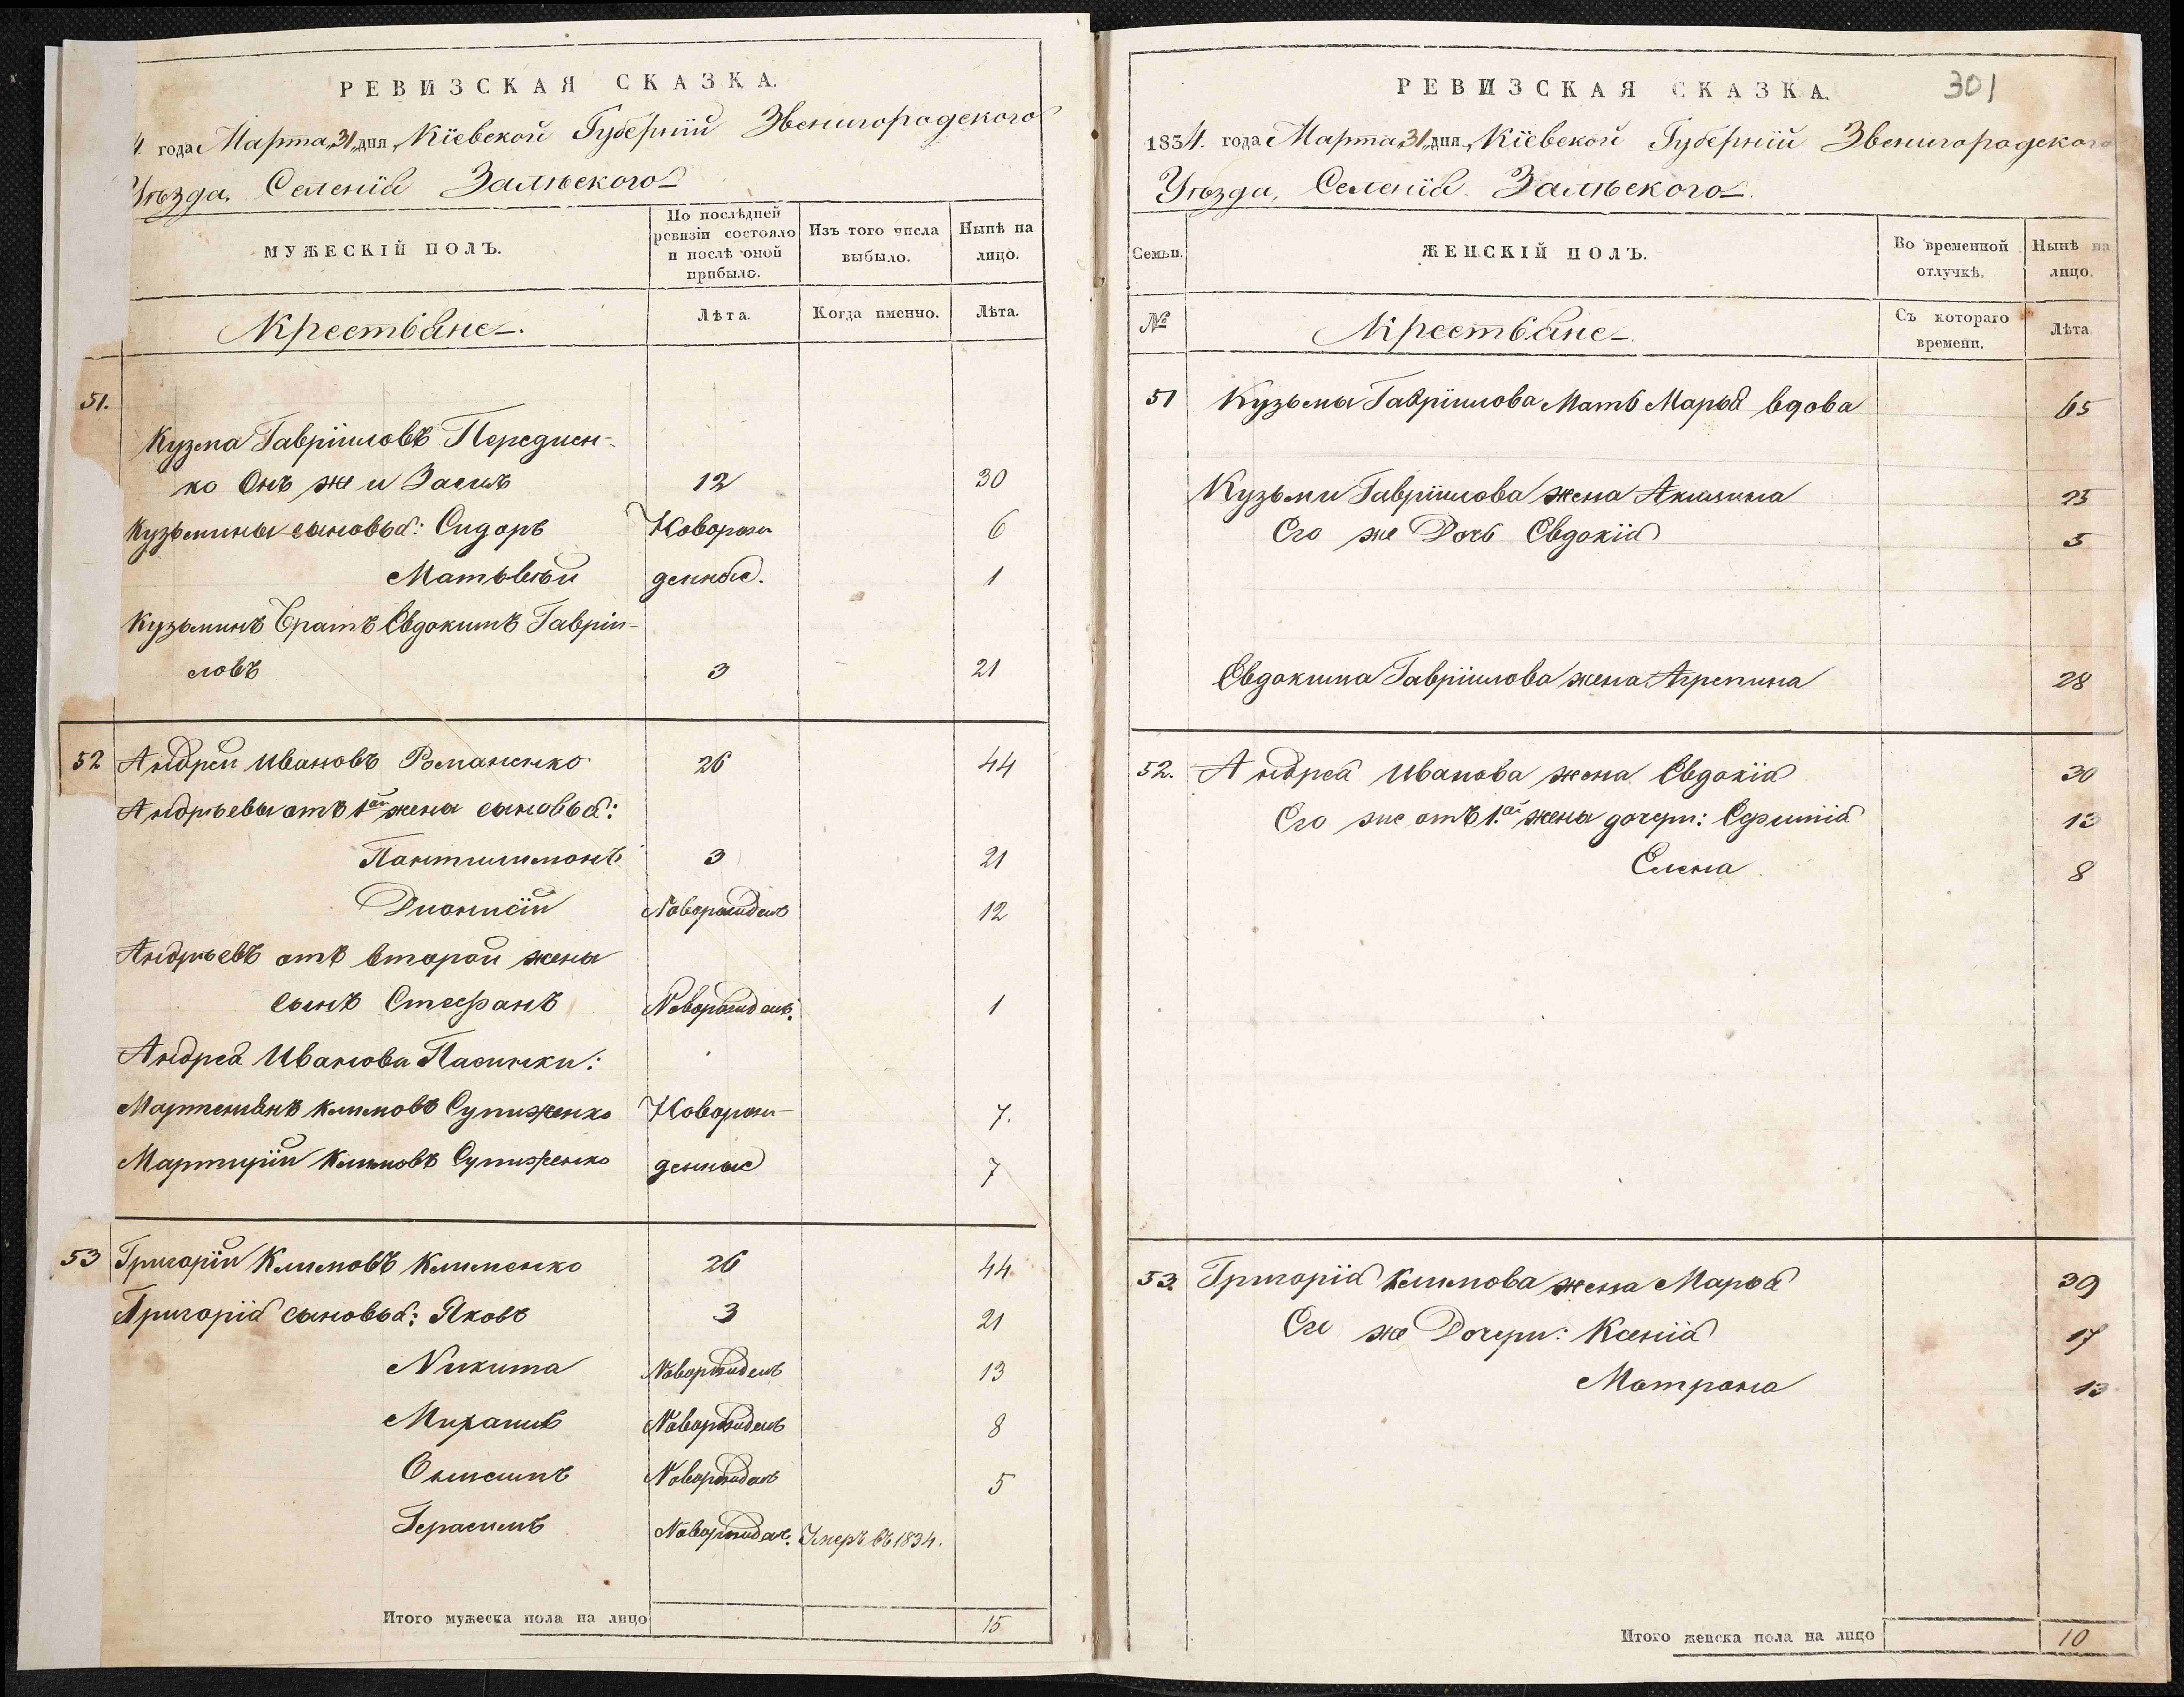 РЕВИЗСКАЯ СКАЗКА.
4. года Марта „31„ дня, Кіевской Губерніи Звенигородского
Уѣзда, Селенія Залѣского
МУЖЕСКІЙ ПОЛЪ.
По послѣдней ревизіи состояло и послѣ оной прибыло.
Изъ того числа выбыло.
Нынѣ на лицо.
Крестьяне.
Лѣта.
Когда именно.
Лѣта.
51.
Кузма Гавріиловъ Передиен-
ко Онъ же и Засиль 12 30
Кузьмины сыновья: СидоръНоворож 6
Матьвѣй денные. 1
Кузьминъ Братъ Евдокимъ Гавріи-
ловъ 3 21
52 Андрей Ивановъ Романенко 26 44
Андрѣевы отъ 1ой жены сыновья:
Пантилимонъ 3 21
Дионисій Новорожден 12
Андрѣевъ отъ второй жены
сынъ Стефанъ Новорожден. 1
Андрея Иванова Пасинки:
Климовъ Супиженко Новорож- 7.
Климовъ Супиженко денные 7
53 Григорій Климовъ Клименко 26 44
Григорія сыновья: Яковъ 3 21
Никита Новорожден 13
Михаилъ Новорожден 8
Онисимъ Новорожден 5
Герасимъ Новорожден. Умеръ въ 1834.
Итого мужеска пола на лицо 15
РЕВИЗСКАЯ СКАЗКА.
301
1834. года Марта „31„ дня, Кіевской Губерніи Звенигородского
Уѣзда, Селенія Залѣского
Семьи.
ЖЕНСКІЙ ПОЛЪ.
Во временной отлучкѣ.
Нынѣ на лицо.
№
Крестьяне.
Съ котораго времени.
Лѣта.
51 Кузьмы Гавріилова Мать Марья вдова 65
Кузьми Гавріилова жена Акилина 25
Его же Дочь Евдокія 5
Евдокима Гавріилова жена Агрепина 28
52. Андрея Иванова жена Евдокія 30
Его же отъ 1.ой жены дочери: Ефимія 13
Елена 8
53. Григорія Климова жена Марья 39
Его же Дочери: Ксенія 17
Матрона 13
Итого женска пола на лицо 10